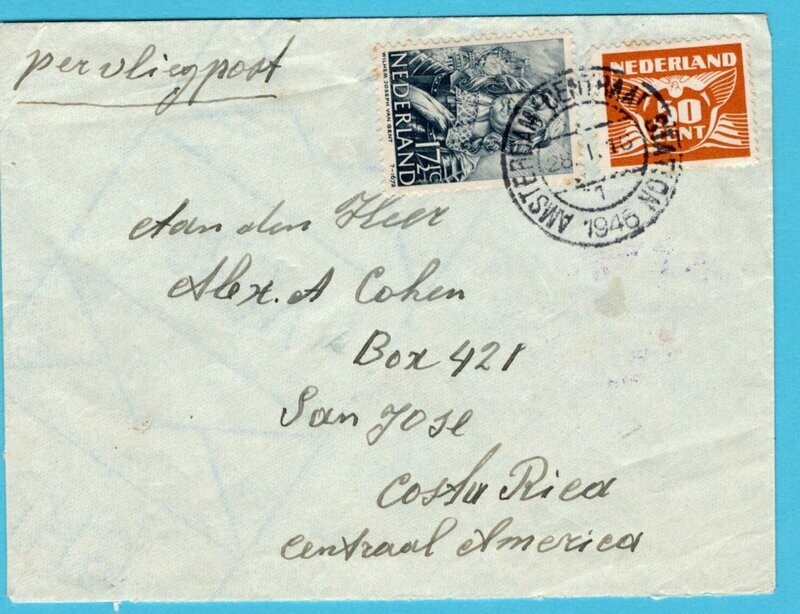 per vliegpost
NEDERLAND
17½ C
WILLEM JOSEPH VAN GENT
† 1672
NEDERLAND
CENT
AMSTERDAM CENTRAAL STATION
1
1946
Aan den Heer
Alex. A Cohen
Box 421
San Jose
Costa Rica
Centraal America